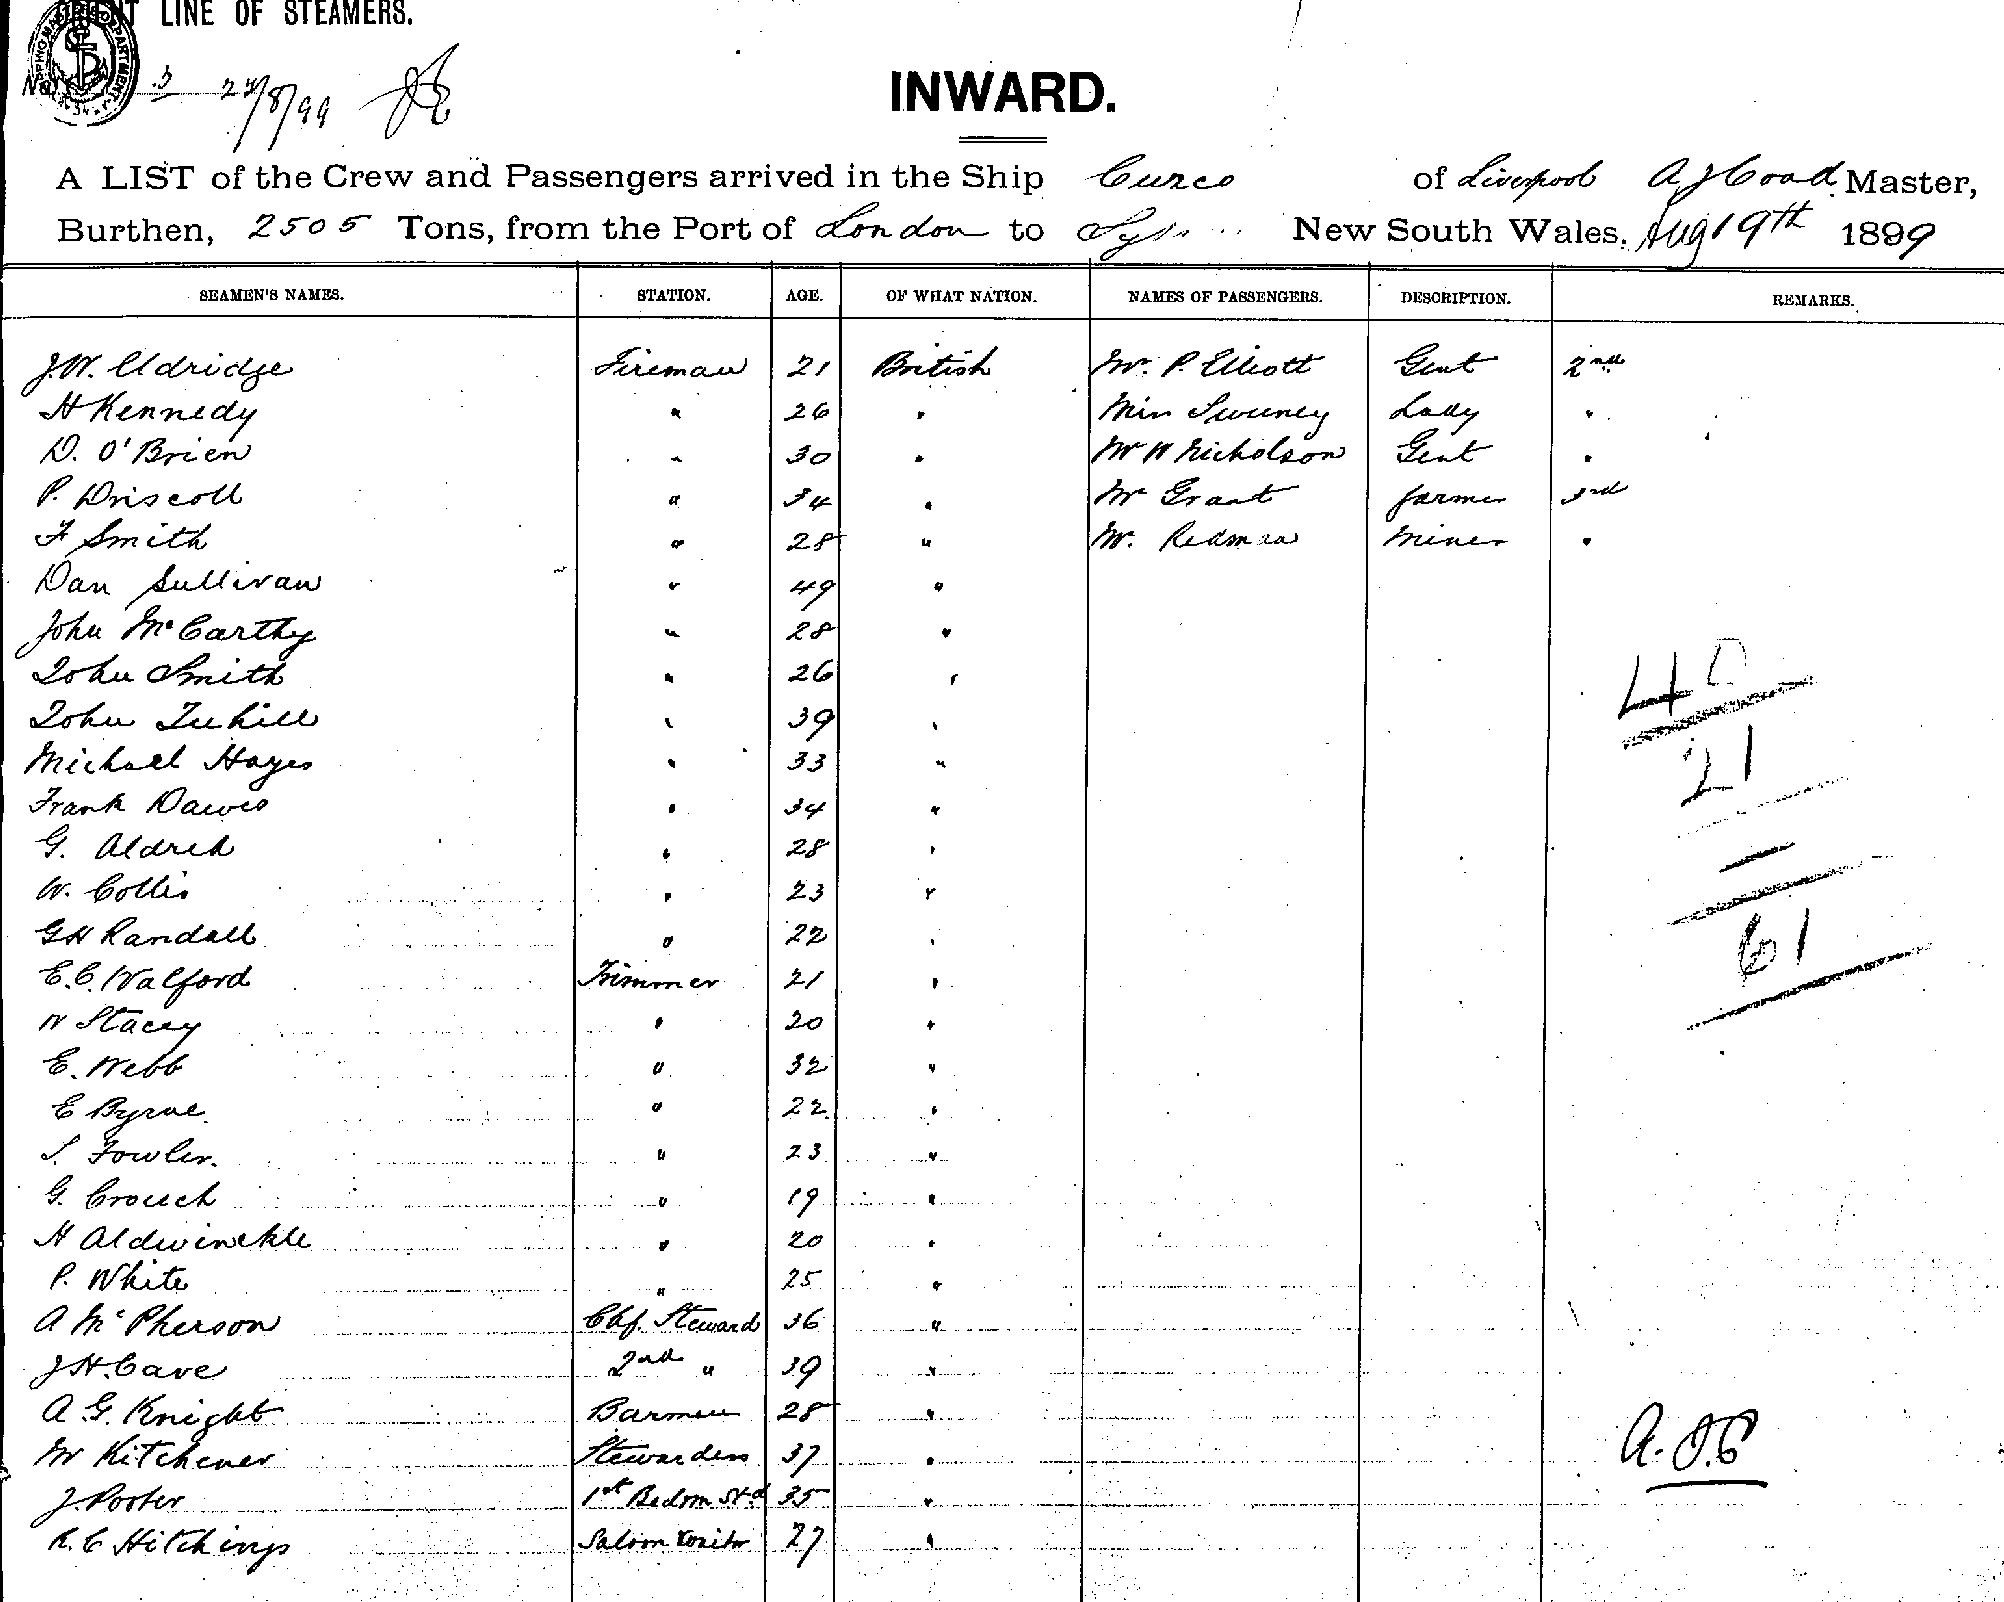 ORIENT LINE OF STEAMERS.
3 22/8/99
INWARD.
A LIST of the Crew and Passengers arrived in the Ship Cuzco of Liverpool A J Coad Master,
Burthen, 2505 Tons, from the Port of London to New South Wales, Aug 19th 1899
SEAMEN'S NAMES. STATION. AGE. OF WHAT NATION. NAMES OF PASSENGERS. DESCRIPTION. REMARKS.
J.W. Aldridge Fireman 21 British Mr. P. Elliott Gent 2nd
H Kennedy " 26 " Miss Sweeney Lady "
D. O'Brien " 30 " Mr W Nicholson Gent "
P. Driscoll " 34 " Mr Grant farmer 3rd
F Smith " 28 " Mr. Redman miner "
Dan Sullivan " 49 "
John McCarthy " 28 "
John Smith " 26 "
John Tuhill " 39 "
Michael Hayes " 33 "
Frank Dawes " 34 "
G. Aldred " 28 "
W. Collis " 23 "
G H Randall " 22 "
E.C. Walford Trimmer 21 "
W Stacey " 20 "
E. Webb " 32 "
E Byrne " 22 "
S. Fowler. " 23 "
G. Crouch " 19 "
H Aldwinckle " 20 "
P. White " 25 "
A McPherson Chf. Steward 36 "
J H. Cave 2nd " 39 "
A. G. Knight Barman 28 "
M Kitchener Stewardess 37 "
J. Porter 1st Bedrm Std 35 "
R. C Hitchings Saloon Waiter 27 "
40
21
61